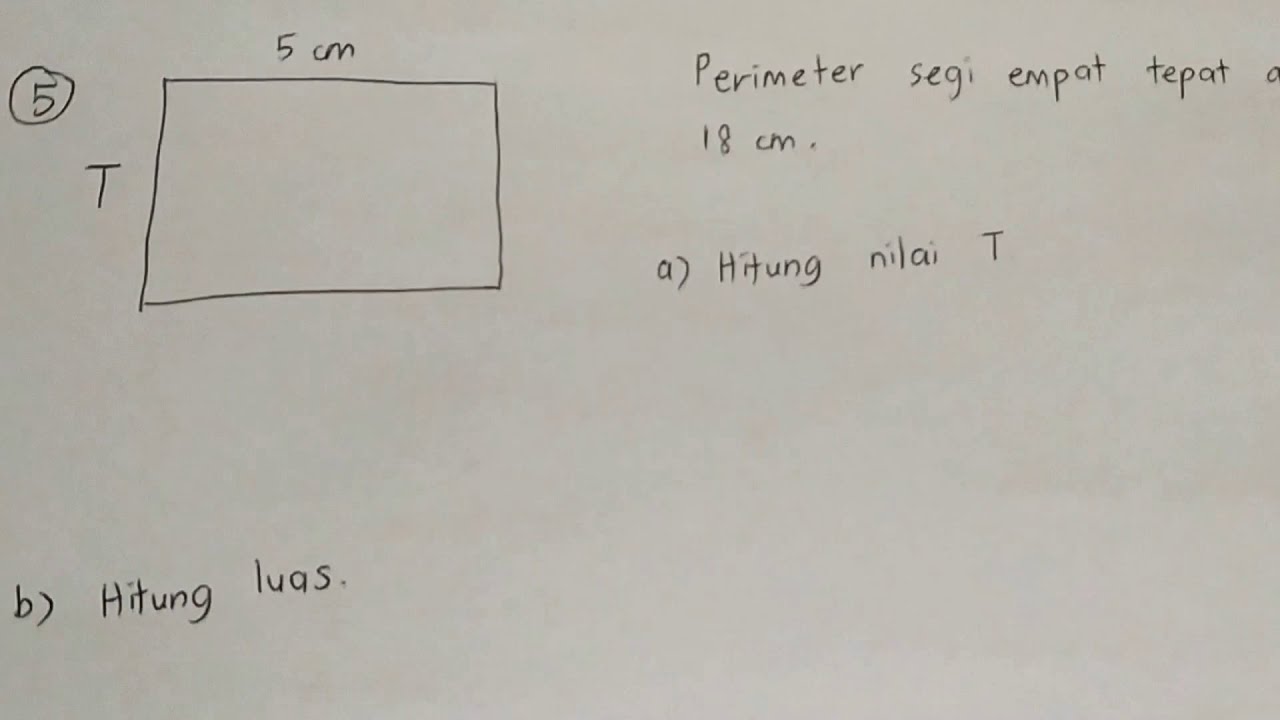 5 cm
5
T
Perimeter segi empat tepat a
18 cm.
a) Hitung nilai T
b) Hitung luas.